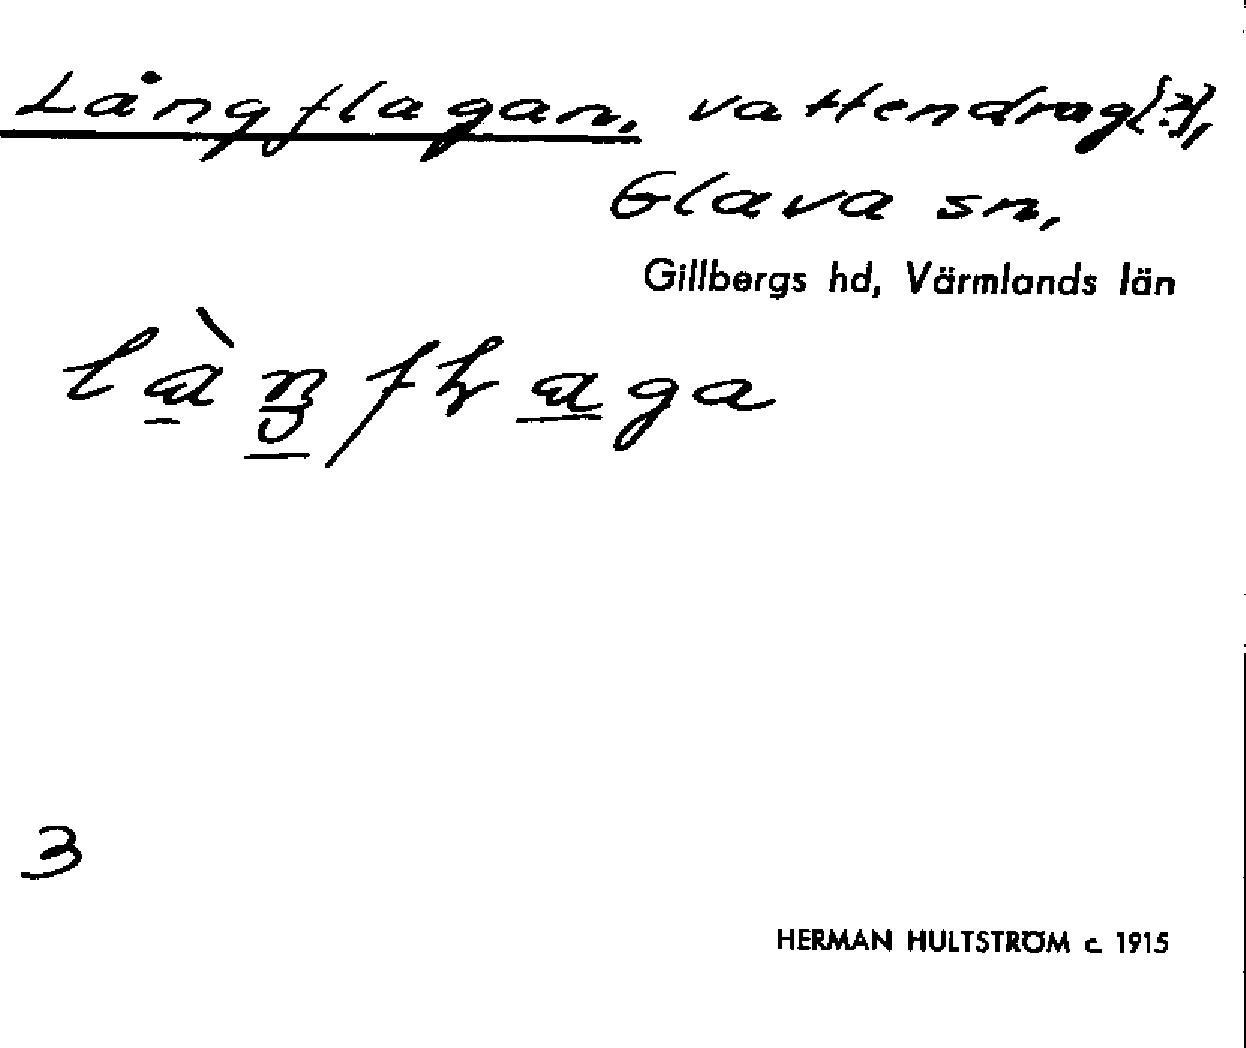 Långflagan, vattendrag(?),
Glava sn,
Gillbergs hd, Värmlands län
3
HERMAN HULTSTRÖM c. 1915